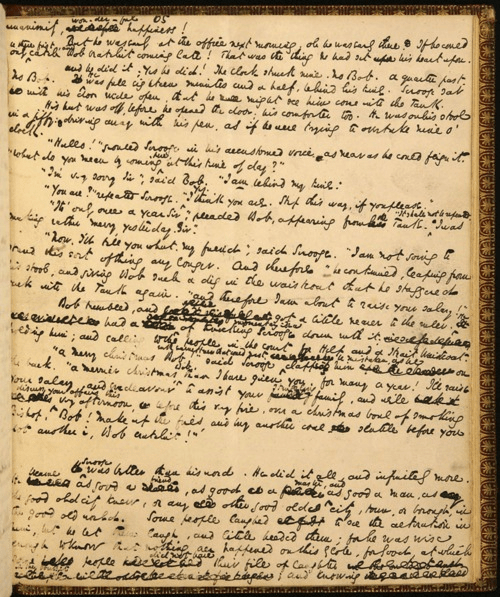 won-der-ful 65
unanimity, happiness!
But he was early at the office next morning. oh he was early there. If he could
only catch Bob Cratchit coming late! That was the thing he had set his heart upon.
and he did it: Yes he did! The clock struck nine. No Bob. a quarter past.
No Bob. He was full eighteen minutes and a half, behind his time. Scrooge sat
with his door wide open, that he might see him come into the Tank.
His hat was off, before he opened the door; his comforter too. He was on his stool
in a jiffy; driving away with his pen, as if he were trying to overtake nine o'
clock.
"Hallo!" growled Scrooge in his accustomed voice as near as he could feign it.
"What do you mean by coming here at this time of day?"
"I'm very sorry Sir", said Bob. "I am behind my time."
"You are?" repeated Scrooge. "Yes. I think you are. Step this way, if you please."
"It's only once a year Sir", pleaded Bob, appearing from the Tank. "It shall not be repeated. I was
making rather merry yesterday, Sir."
"Now, I'll tell you what, my friend", said Scrooge. "I am not going to
stand this sort of thing any longer. And therefore" he continued, leaping from
his stool, and giving Bob such a dig in the waistcoat that he staggered
back into the Tank again: "and therefore I am about to raise your salary!"
Bob trembled, and got a little nearer to the ruler. He
had a momentary idea of knocking Scrooge down with it;
holding him; and calling to the people in the court for help and a strait waistcoat.
"a merry christmas Bob", said Scrooge as he clapped him on
the back. "a merrier christmas Bob than I have given you for many a year! I'll raise
your salary, and endeavour to assist your struggling family, and we will
discuss your affairs this
very afternoon, over a christmas bowl of smoking
bishop, Bob! Make up the fires, and buy another coal scuttle before you
dot another i, Bob Cratchit!"
Scrooge was better than his word. He did it all, and infinitely more.
became as good a friend, as good a master, and as good a man, as
the good old city knew, or any other good old city, town, or borough, in
the good old world. Some people laughed to see the alteration in
him, but he let them laugh, and little heeded them; for he was wise
enough to know that nothing ever happened on this globe, for good, at which
some people did not have their fill of laughter
and knowing